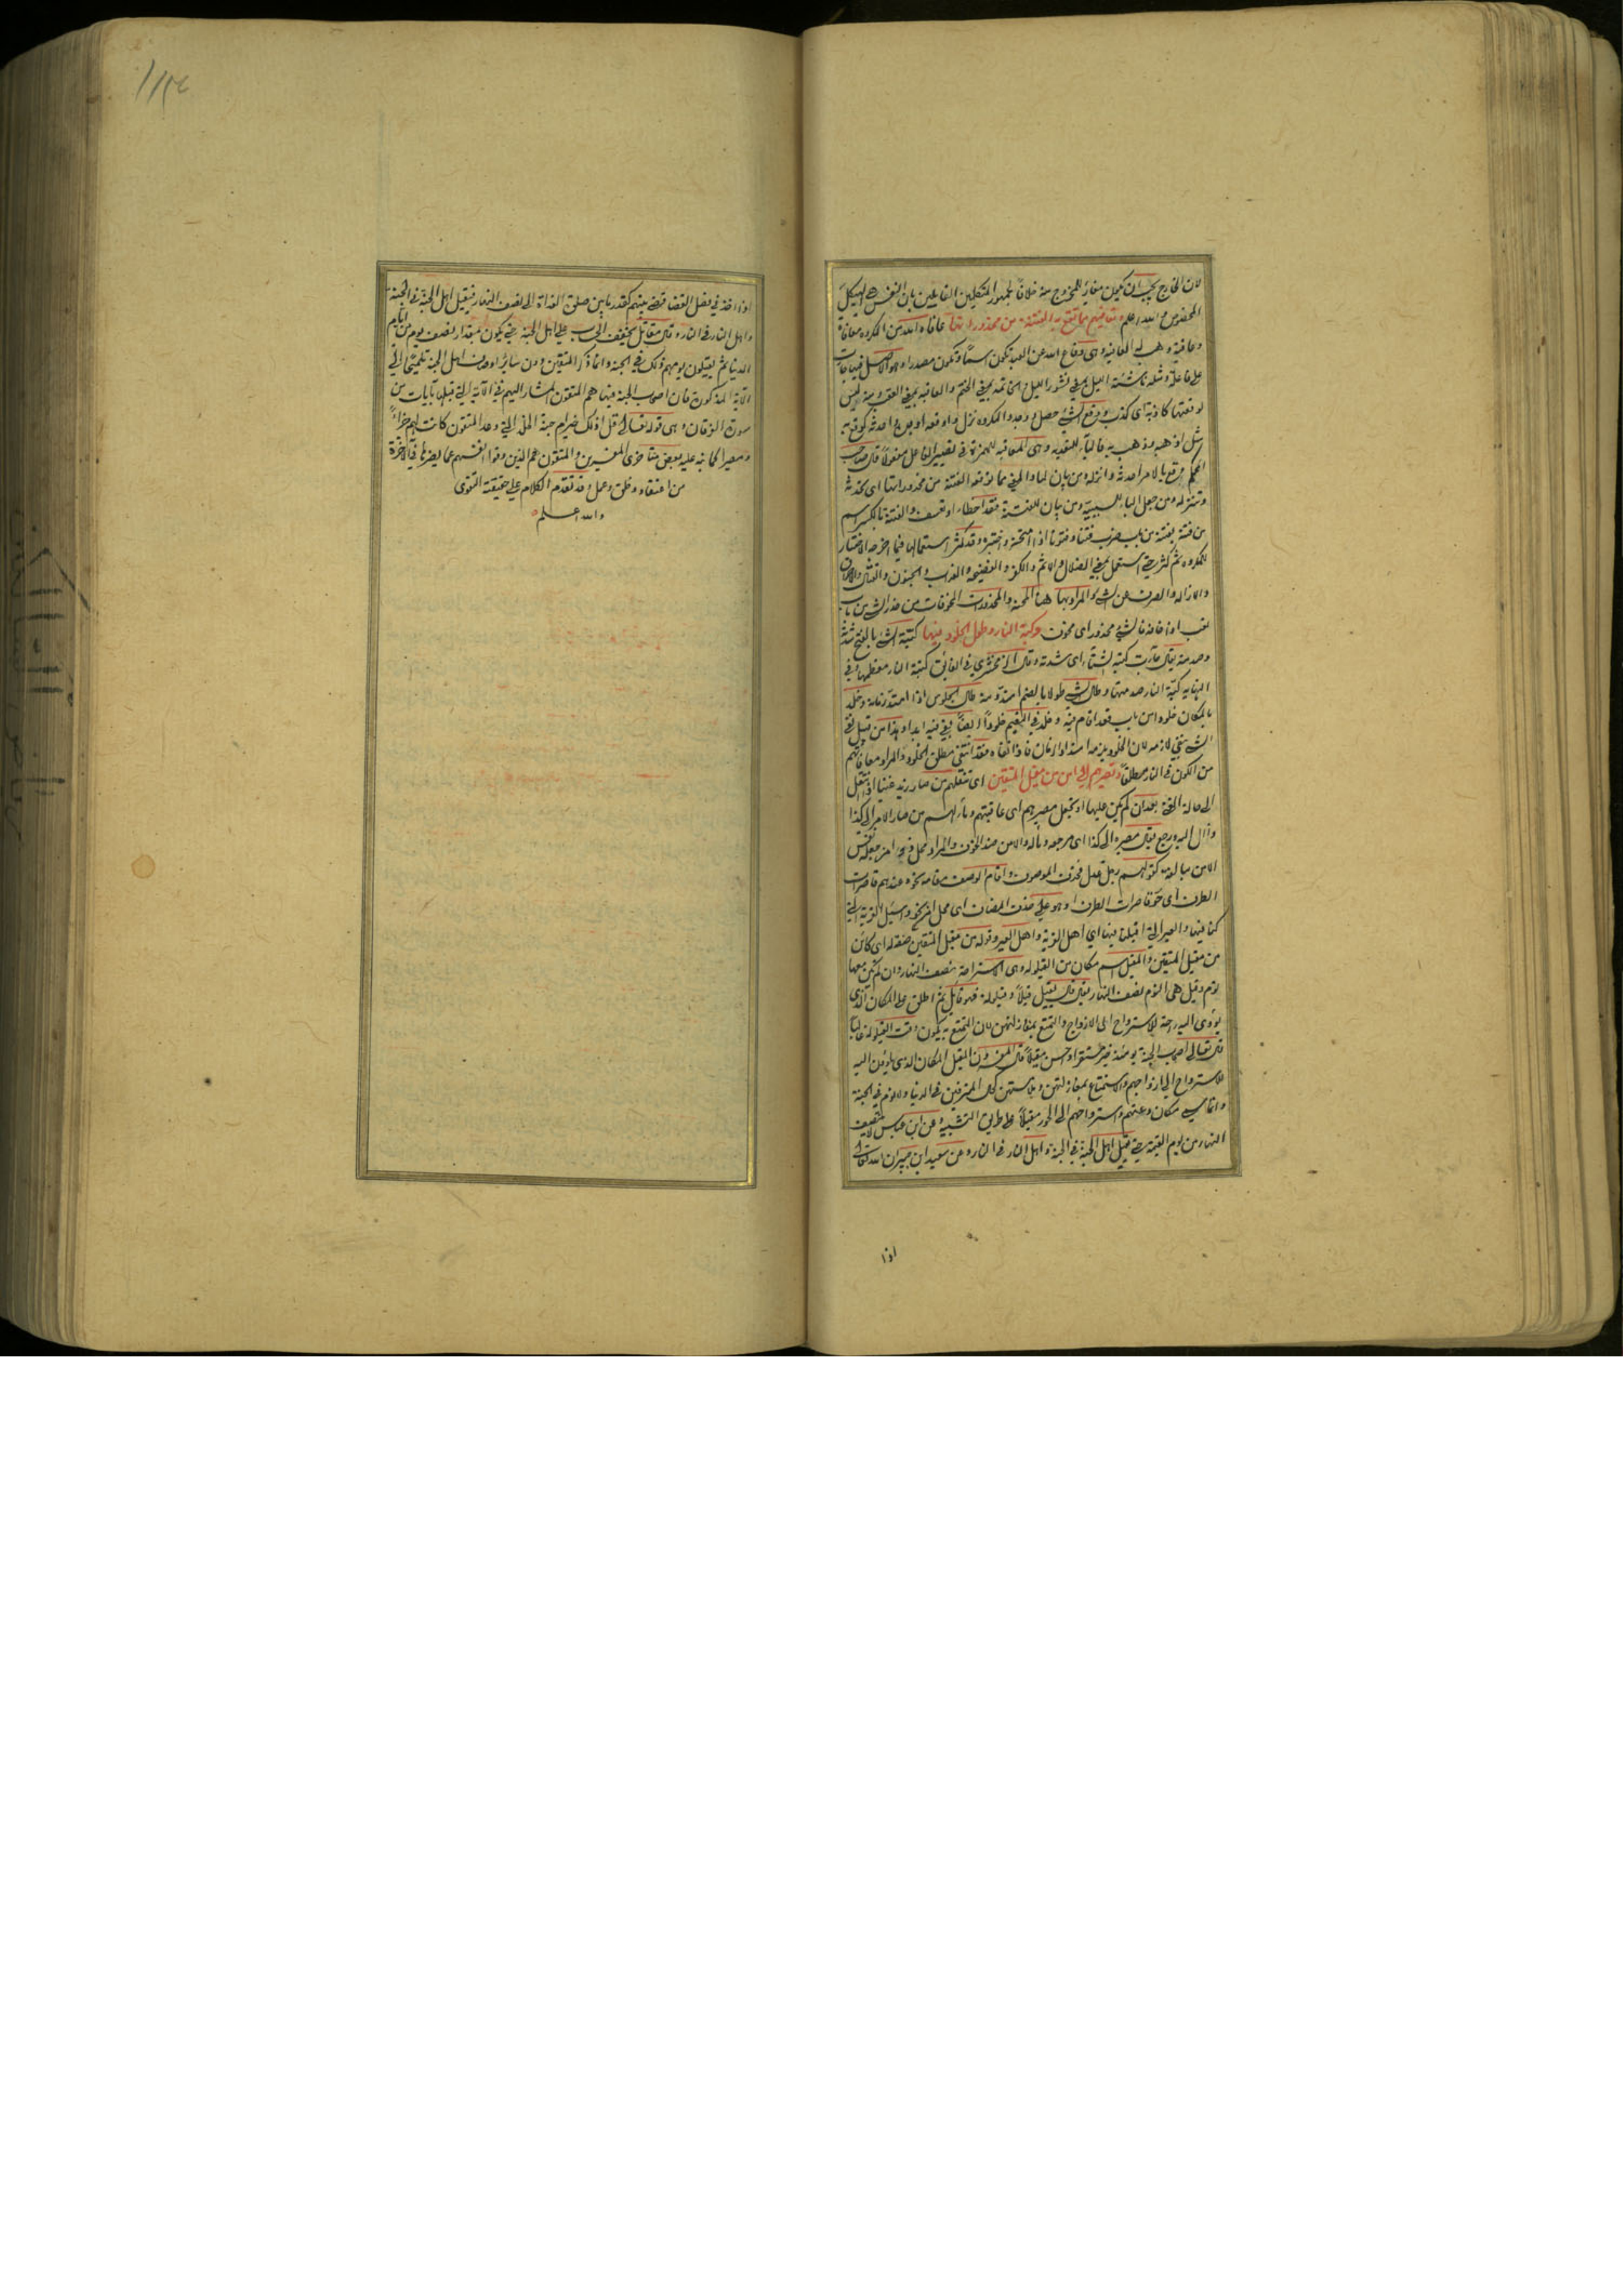 لان الخارج يجب ان يكون مغاير للمخروج منه خلافا لجمهور المتكلمين القايلين بان النفس هي الهيكل
المخصوص والله اعلم وتعافيهم مما تقع به الفتنة من محذوراتها عافاه الله من المكروه معافاة
وعافية وهب له العافية وهي دفاع الله عن العبد وتكون اسما وتكون مصدرا وهو الاصل فيما جاءت
على فاعلة ومثله ناشئة الليل بمعنى نشور الليل والخاتمة بمعنى الختم والعاقبة بمعنى العقب ومنه ليس
لوقعتها كاذبة اى كذب ووقع الشئ حصل ووجد والمكروه نزل واوقعه او به احدثه كوقع به
مثل اذهبه وذهب به فالباء للتعدية وهي المعاقبة للهمزة في تصيير الفاعل مفعولا قال صاحب
المحكم وقع بالامر احدثه وانزله ومن بيان لما والمعنى مما توقعه الفتنة من محذوراتها اى تحدثه
وتنزله ومن جعل الباء للسببية ومن بيان للفتنة فقد اخطاء او تعسف والفتنة بالكسر اسم
من فتنه يفتنه من باب ضرب فتنا وفتونا اذا امتحنه واختبره وقد كثر استعمالها فيما اخرجه الاختبار
للمكروه ثم كثر حتى استعمل بمعنى الضلال والاثم والكفر والفضيحة والعذاب والجنون والقتال والاحراق
والازالة والصرف عن الشئ والمراد بها هنا المحنة والمحذورات المخوفات من حذر الشئ من باب
تعب اذا خافه فالشئ محذور اى مخوف وكبة النار وطول الخلود فيها كبة الشئ بالفتح شدته
وصدمته يقال جاءت كبة الشتاء اى شدته وقال الزمخشري في الفائق كبة النار معظمها وفي
النهاية كبة النار صدمتها وطال الشئ طولا بالضم امتد ومنه طال الجلوس اذا امتد زمانه وخلد
بالمكان خلودا من باب قعد اقام فيه وخلد في النعيم خلودا ايضا بقي فيه ابدا وهذا من قبيل نفي
الشئ بنفي لازمه لان الخلود يلزمه امتداد الزمان فاذا انتفاه فقد انتفى مطلق الخلود والمراد معافاتهم
من الكون في النار مطلقا وتصيرهم الى امن من مقيل المتقين اى تنقلهم من صار زيد غنيا اذا انتقل
الى حالة الغنى بعد ان لم يكن عليها او تجعل مصيرهم اى عاقبتهم ومآلهم من صار الامر الى كذا
وآل اليه ورجع يقال مصيره الى كذا اى مرجعه ومآله والامن ضد الخوف والمراد محل ذي امن جعله نفس
الامن مبالغة كقولهم رجل عدل فحذف الموصوف واقام الوصف مقامه نحوه عندهم قاصرات
الطرف اى حور قاصرات الطرف او هو على حذف المضاف اى محل امن نحو واسئل القرية التي
كنا فيها والعير التي اقبلنا فيها اي اهل القرية واهل العير وقوله من مقيل المتقين صفة له اى كائن
من مقيل المتقين والمقيل اسم مكان من القيلولة وهي الاستراحة نصف النهار وان لم يكن معها
نوم وقيل هي النوم نصف النهار يقال قال يقيل قيلا وقيلولة فهو قائل ثم اطلق على المكان الذي
يؤوى اليه رحمة للاسترواح الى الازواج والتمتع بمغازلتهن لان التمتع به يكون وقت القيلولة غالبا
قال تعالى اصحاب الجنة يومئذ خير مستقرا واحسن مقيلا قال المفسرون المقيل المكان الذي ياوون اليه
للاسترواح الى ازواجهم والاستمتاع بمغازلتهن وملامستهن كحال المترفين في الدنيا ولا نوم في الجنة
وانما سمي مكان دعتهم واسترواحهم الى الحور مقيلا على طريق التشبيه وعن ابن عباس لا ينتصف
النهار من يوم القيمة حتى يقيل اهل الجنة في الجنة واهل النار في النار وعن سعيد ابن جبير ان الله تعالى
اذا
١١٥٤
اذا اخذ في فصل القضا قضى بينهم كقدر ما بين صلوة الغداة الى نصف النهار فيقيل اهل الجنة في الجنة
واهل النار في النار وقال مقاتل يخفف الحساب على اهل الجنة حتى يكون بمقدار نصف يوم من ايام
الدنيا ثم يقيلون يومهم ذلك في الجنة وانما ذكر المتقين دون سائر اوصاف اهل الجنة تلميحا الى
الاية المذكورة فان اصحاب الجنة فيها هم المتقون المشار اليهم في الآية التي قبلها بآيات من
سورة الفرقان وهى قوله تعالى قل اذلك خير ام جنة الخلد التي وعد المتقون كانت لهم جزاء
ومصيرا كما نبه عليه بعض متاخرى المفسرين والمتقون هم الذين وقوا انفسهم عما يضرها في الآخرة
من اعتقاد وظن وعمل وقد تقدم الكلام على حقيقة التقوى
والله اعلم